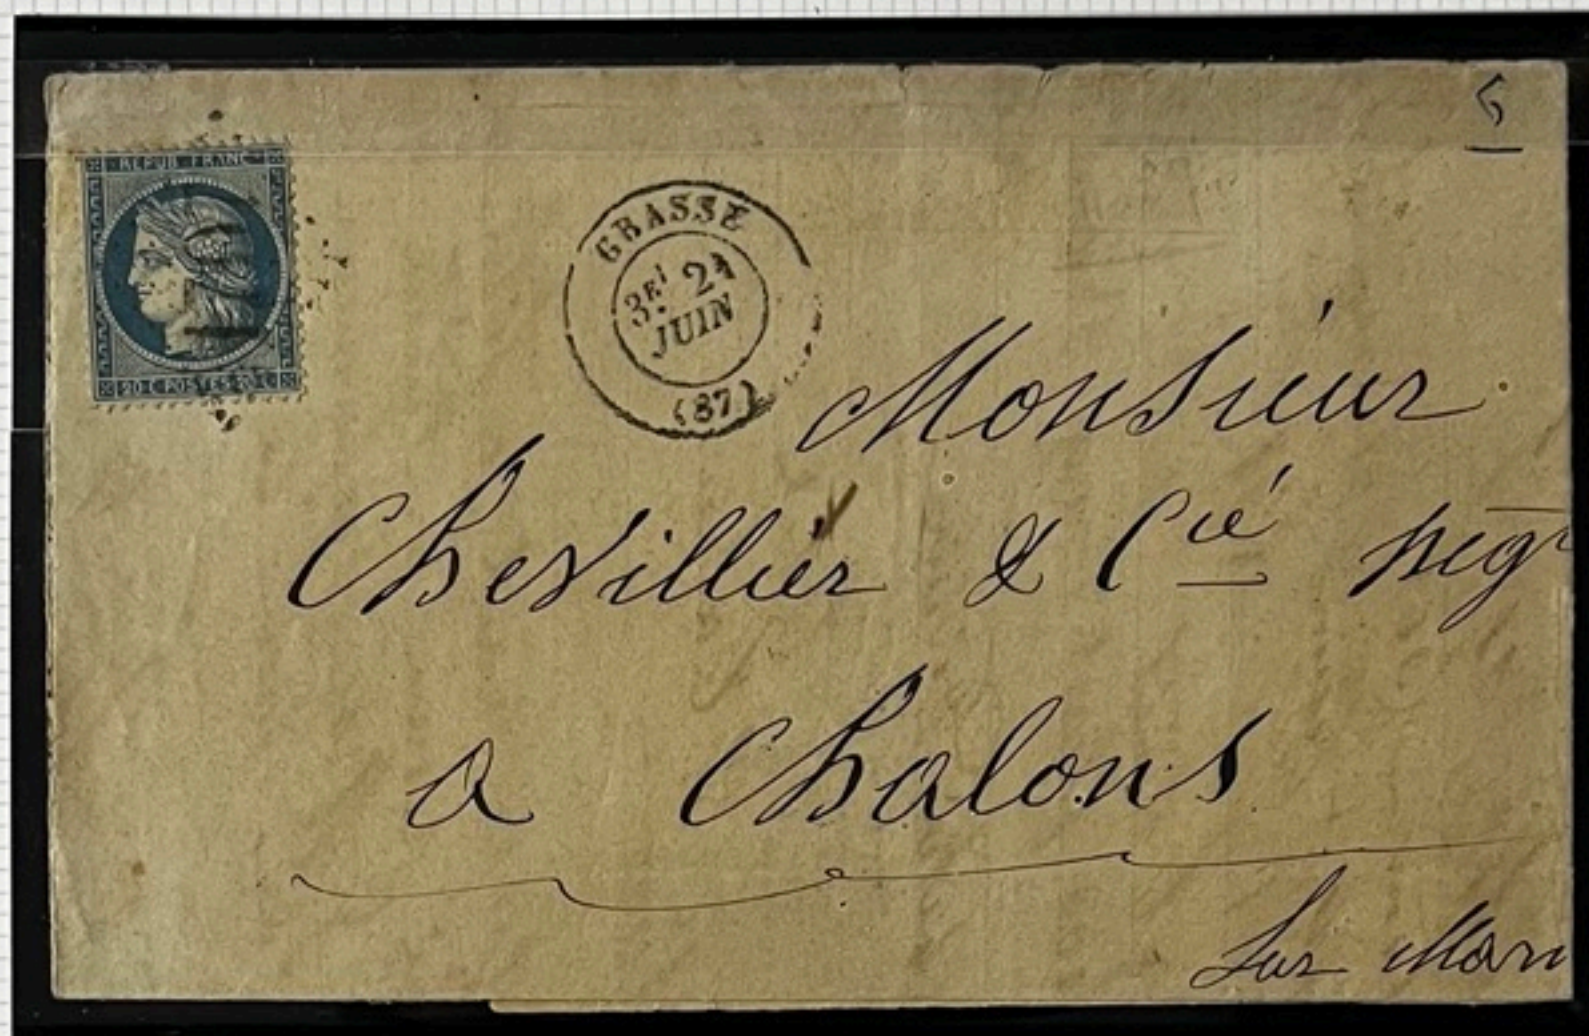 5
REPUB FRANC
20 C POSTES 20 C
GRASSE
3E 21
JUIN
(87)
Monsieur
Chevillier & Cie nég
a Chalons
Sur Marn